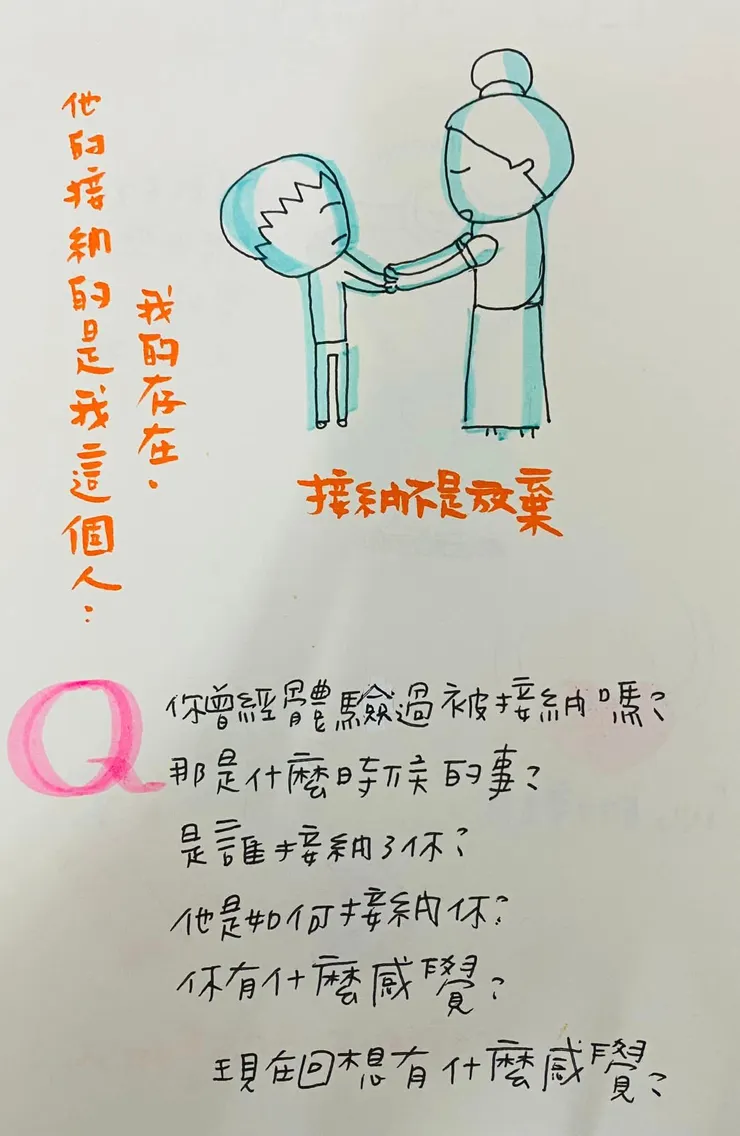 他的接納的是我這個人：
我的存在。
接納不是放棄
Q 你曾經體驗過被接納嗎？
那是什麼時候的事？
是誰接納了你？
他是如何接納你？
你有什麼感覺？
現在回想有什麼感覺？